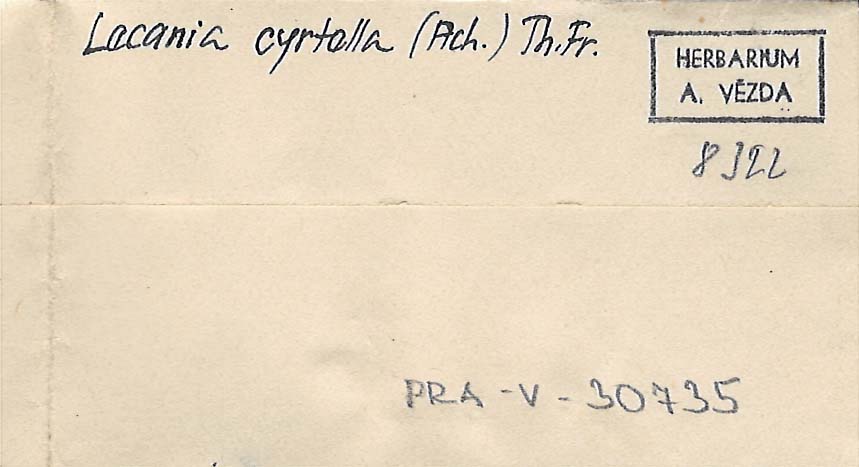 Lecania cyrtella (Ach.) Th. Fr.
HERBARIUM
A. VĚZDA
8322
PRA-V-30735